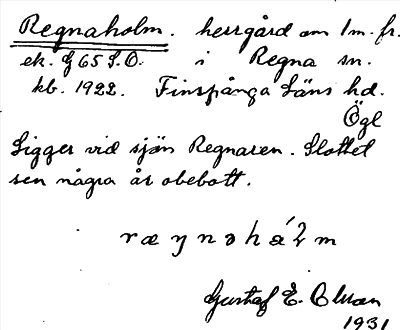 Regnaholm. herrgård om 1 m. fr.
ek. G 65 S.O. i Regna sn.
kb. 1922. Finspånga Läns hd.
Ögl
Ligger vid sjön Regnaren. Slottet
sen några år obebott.
ræynəhál̥m
Gustaf E. Olsson
1931